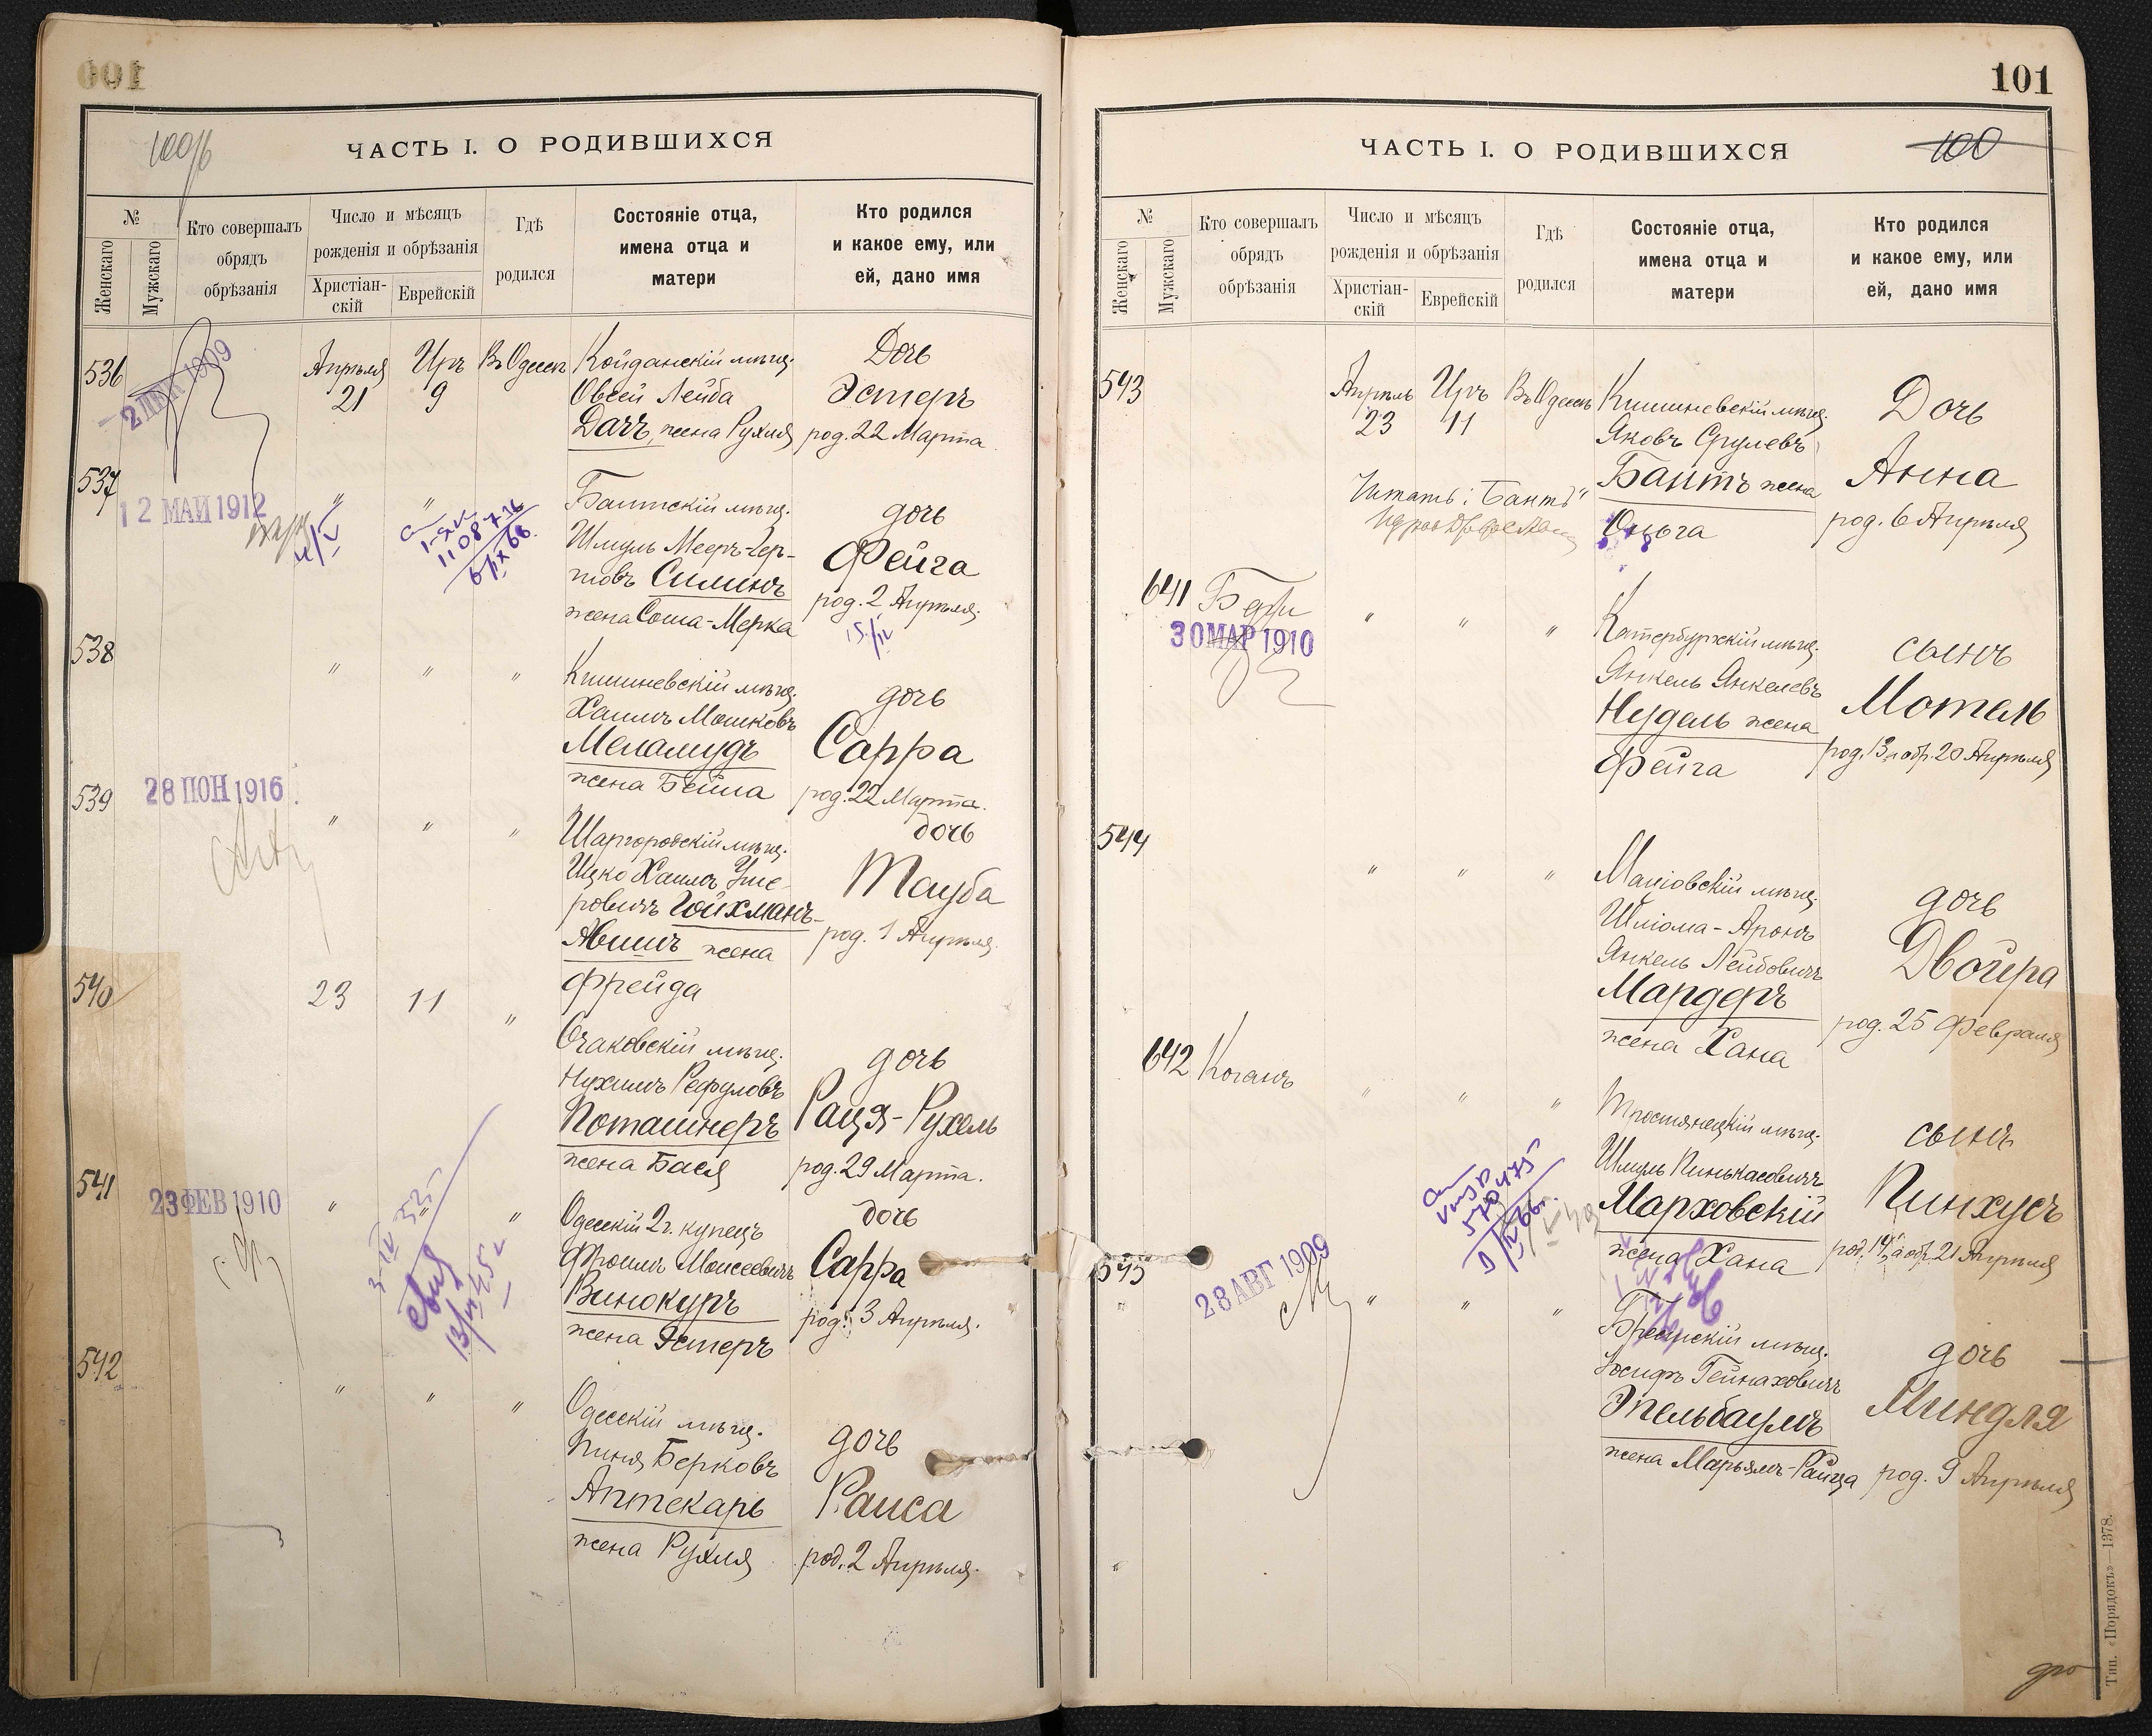 100/б
ЧАСТЬ I. О РОДИВШИХСЯ
№
Женскаго
Мужскаго
Кто совершалъ
обрядъ
обрѣзанія
Число и мѣсяцъ
рожденія и обрѣзанія
Христіан-
скій
Еврейскій
Гдѣ
родился
Состояніе отца,
имена отца и
матери
Кто родился
и какое ему, или
ей, дано имя
536
2 ДЕК 1909
Апрѣля
21
Иръ
9
Въ Одессѣ
Койдановскій мѣщ.
Овсей Лейба
Дачъ, жена Рухля
Дочь
Эстеръ
род. 22 Марта
537
12 МАЙ 1912
"
"
Балтскій мѣщ.
Шмуль Мееръ-Гер-
шовъ Силинъ
жена Соша-Мерка
дочь
Фейга
род. 2 Апрѣля.
538
"
"
"
Кишиневскій мѣщ.
Хаимъ Мошковъ
Меламудъ
жена Бейла
дочь
Сарра
род. 22 Марта.
539
28 ІЮН 1916
"
"
"
Шаргородскій мѣщ.
Ицко Хаимъ Уше-
ровичъ Гойхманъ-
Авишъ жена
Фрейда
дочь
Тауба
род. 1 Апрѣля.
540
23
11
"
Очаковскій мѣщ.
Нухимъ Рефуловъ
Поташнеръ
жена Бася
дочь
Раця-Рухель
род. 29 Марта.
541
23 ФЕВ 1910
"
"
"
Одесскій 2 г. купецъ
Фроимъ Моисеевичъ
Винокуръ
жена Эстеръ
дочь
Сарра
род. 3 Апрѣля.
542
"
"
"
Одесскій мѣщ.
Пиня Берковъ
Аптекарь
жена Рухля
дочь
Раиса
род. 2 Апрѣля.
101
100
ЧАСТЬ I. О РОДИВШИХСЯ
№
Женскаго
Мужскаго
Кто совершалъ
обрядъ
обрѣзанія
Число и мѣсяцъ
рожденія и обрѣзанія
Христіан-
скій
Еврейскій
Гдѣ
родился
Состояніе отца,
имена отца и
матери
Кто родился
и какое ему, или
ей, дано имя
543
Апрѣль
23
Иръ
11
Въ Одессѣ
Кишиневскій мѣщ.
Яковъ Срулевъ
Бантъ жена
Читать: "Бантъ"
Дочь
Анна
род. 6 Апрѣля
641
30 МАР 1910
"
"
"
Катербургскій мѣщ.
Янкель Янкелевъ
Нудель жена
Фейга
сынъ
Мотель
род. 13, а обр. 20 Апрѣля
544
"
"
"
Маніовскій мѣщ.
Шліома-Аронъ
Янкель Лейбовичъ
Мардеръ
жена Хана
дочь
Двойра
род. 25 Февраля
642
Коганъ
"
"
"
Тростянецкій мѣщ.
Шмуль Пинькасовичъ
Марховскій
жена Хана
сынъ
Пинхусъ
род. 14, а обр. 21 Апрѣля
545
28 АВГ 1909
"
"
"
Іосифъ Гейнаховичъ
Эпельбаумъ
жена Марьямъ-Раица
дочь
Миндля
род. 9 Апрѣля
Тип. «Порядокъ»—1378.